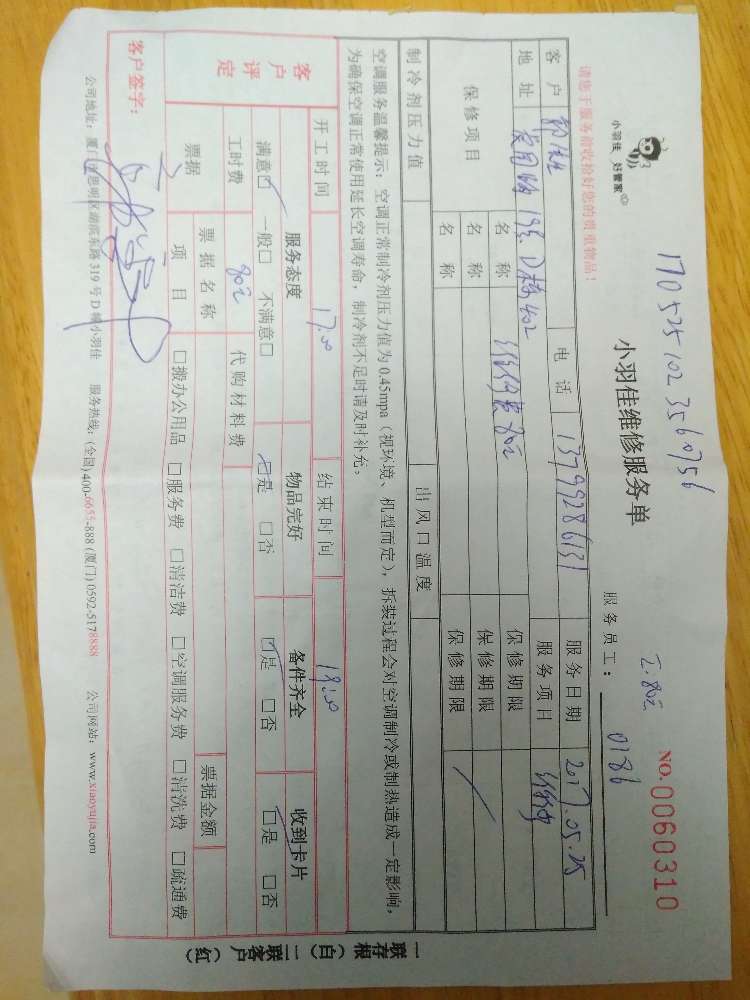 1705251023560756
工:80元
小羽佳 好管家
小羽佳维修服务单
NO.0060310
请您于服务前收拾好您的贵重物品!
服务员工: 0186
客户 电话 13799286131 服务日期 2017.05.25
地址 19号D栋402 服务项目
保修项目 名称 80元 保修期限
名称 保修期限
名称 保修期限
制冷剂压力值 出风口温度
空调服务温馨提示:空调正常制冷剂压力值为0.45mpa(视环境、机型而定),拆装过程会对空调制冷或制热造成一定影响,
为确保空调正常使用延长空调寿命,制冷剂不足时请及时补充。
开工时间 17:00 结束时间 19:00
客户评定 服务态度 物品完好 备件齐全 收到卡片
满意☑ 一般□ 不满意□ ☑是 □否 ☑是 □否 □是 □否
工时费 80元 代购材料费
票据 票据名称 票据金额
项目 □搬办公用品 □服务费 □清洁费 □空调服务费 □清洗费 □疏通费
客户签字:
公司地址:厦门市思明区湖滨东路319号D幢小羽佳 服务热线:(全国)400-6655-888(厦门)0592-5178888 公司网站:www.xiaoyujia.com
一联存根(白) 二联客户(红)